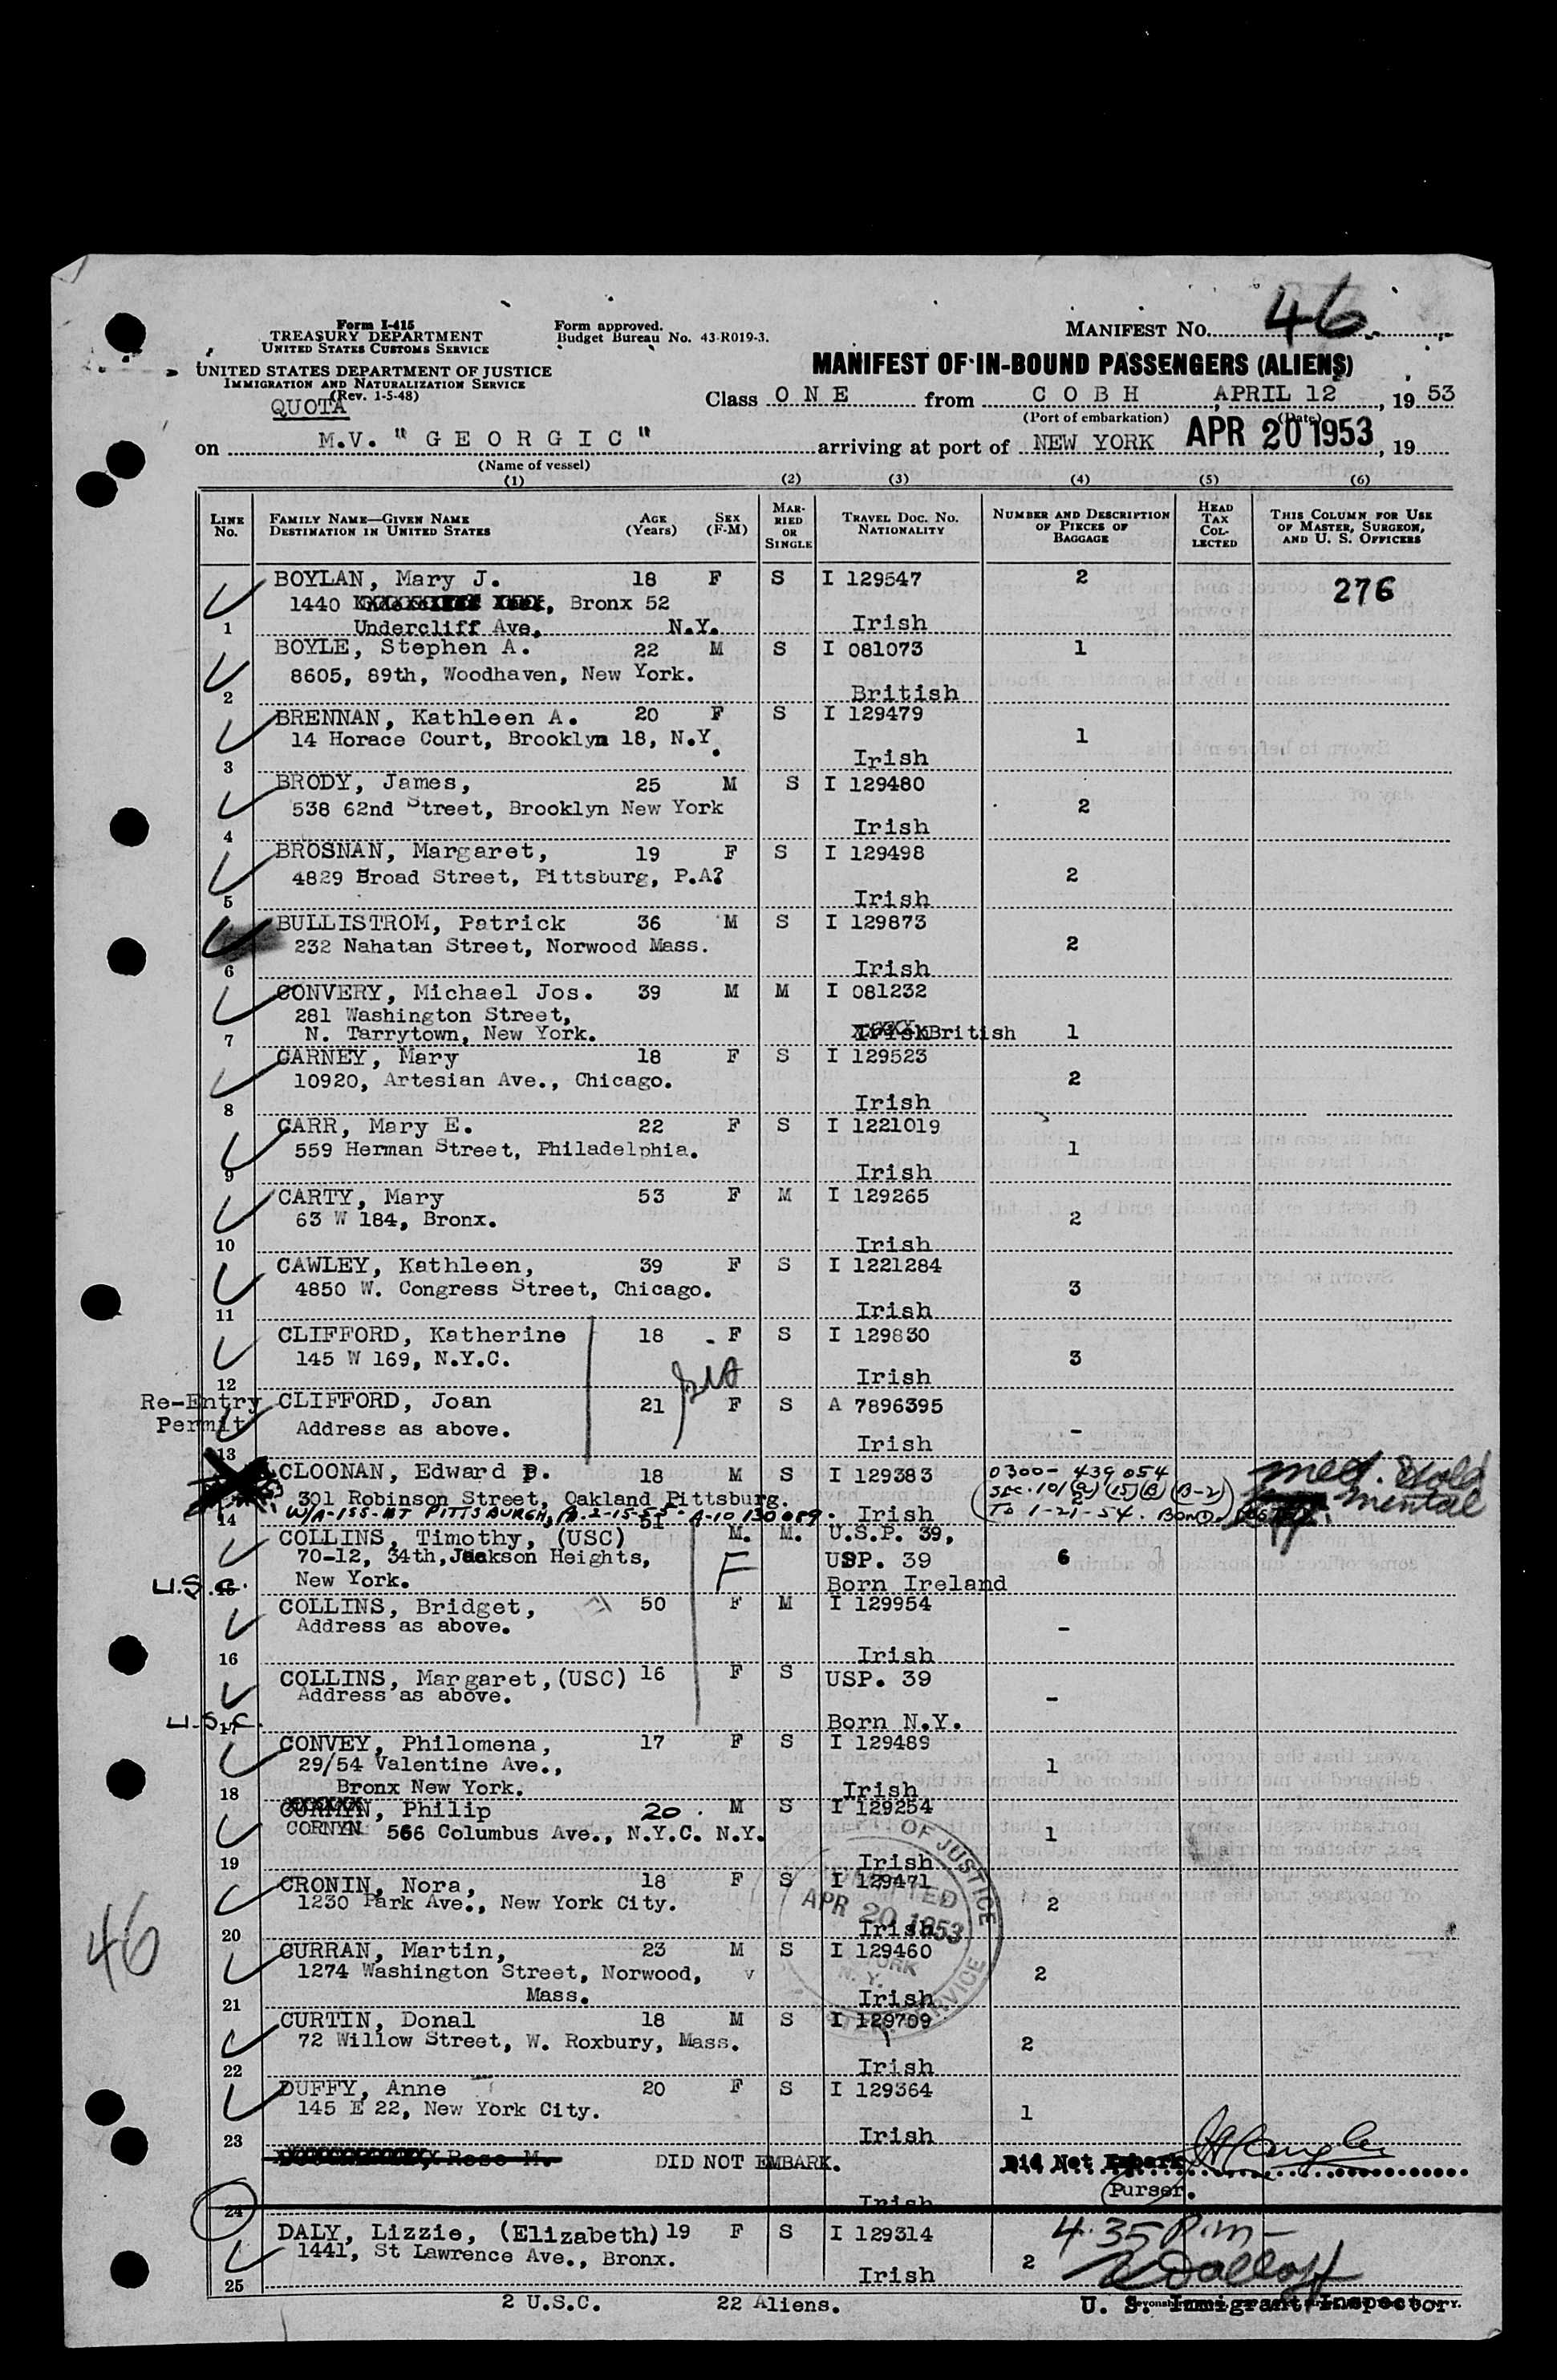 Form I-415
TREASURY DEPARTMENT
UNITED STATES CUSTOMS SERVICE
UNITED STATES DEPARTMENT OF JUSTICE
IMMIGRATION AND NATURALIZATION SERVICE
(Rev. 1-5-48)
QUOTA
Form approved.
Budget Bureau No. 43-R019-3.
MANIFEST No. 46
MANIFEST OF IN-BOUND PASSENGERS (ALIENS)
Class O N E from C O B H, APRIL 12, 19 53
(Port of embarkation) (Date)
on M.V. "G E O R G I C" arriving at port of NEW YORK APR 20 1953, 19
(Name of vessel)
(1) (2) (3) (4) (5) (6)
LINE No.
FAMILY NAME—GIVEN NAME
DESTINATION IN UNITED STATES
AGE (Years)
SEX (F-M)
MARRIED OR SINGLE
TRAVEL DOC. No. NATIONALITY
NUMBER AND DESCRIPTION OF PIECES OF BAGGAGE
HEAD TAX COLLECTED
THIS COLUMN FOR USE OF MASTER, SURGEON, AND U. S. OFFICERS
BOYLAN, Mary J. 18 F S I 129547 2 276
1440 , Bronx 52
1 Undercliff Ave, N.Y. Irish
BOYLE, Stephen A. 22 M S I 081073 1
8605, 89th, Woodhaven, New York.
2 British
BRENNAN, Kathleen A. 20 F S I 129479
14 Horace Court, Brooklyn 18, N.Y. 1
3 Irish
BRODY, James, 25 M S I 129480
538 62nd Street, Brooklyn New York 2
4 Irish
BROSNAN, Margaret, 19 F S I 129498
4829 Broad Street, Pittsburg, P.A? 2
5 Irish
BULLISTROM, Patrick 36 M S I 129873
232 Nahatan Street, Norwood Mass. 2
6 Irish
CONVERY, Michael Jos. 39 M M I 081232
281 Washington Street,
7 N. Tarrytown, New York. Irish British 1
CARNEY, Mary 18 F S I 129523
10920, Artesian Ave., Chicago. 2
8 Irish
CARR, Mary E. 22 F S I 1221019
559 Herman Street, Philadelphia. 1
9 Irish
CARTY, Mary 53 F M I 129265
63 W 184, Bronx. 2
10 Irish
CAWLEY, Kathleen, 39 F S I 1221284
4850 W. Congress Street, Chicago. 3
11 Irish
CLIFFORD, Katherine 18 F S I 129830
145 W 169, N.Y.C. 3
12 Irish
Re-Entry Permit
CLIFFORD, Joan 21 F S A 7896395
Address as above. -
13 Irish
CLOONAN, Edward P. 18 M S I 129383 0300-439054 med. Hold
301 Robinson Street, Oakland Pittsburg. Irish Sec. 101(a)(15)(B)(B-2) mental
14 W/A-155-AT PITTSBURGH, PA. 2-15-55- A-10 130 059. To 1-21-54. Bond
COLLINS, Timothy, (USC) 51 M. M. U.S.P. 39,
70-12, 34th, Jackson Heights, F USP. 39 6
U.S.C. 15 New York. Born Ireland
COLLINS, Bridget, 50 F M I 129954
Address as above. -
16 Irish
COLLINS, Margaret, (USC) 16 F S USP. 39
Address as above. -
U.S.C. 17 Born N.Y.
CONVEY, Philomena, 17 F S I 129489
29/54 Valentine Ave., 1
18 Bronx New York. Irish
CORMYN, Philip 20. M S I 129254
CORNYN 566 Columbus Ave., N.Y.C. N.Y. 1
19 Irish
CRONIN, Nora, 18 F S I 129471
1230 Park Ave., New York City. 2
20 Irish
CURRAN, Martin, 23 M S I 129460
1274 Washington Street, Norwood, v 2
21 Mass. Irish
CURTIN, Donal 18 M S I 129709
72 Willow Street, W. Roxbury, Mass. 2
22 Irish
DUFFY, Anne 20 F S I 129364
145 E 22, New York City. 1
23 Irish
Rose M. DID NOT EMBARK. Did Not Embark
Purser.
24 Irish
DALY, Lizzie, (Elizabeth) 19 F S I 129314 4.35 P.m-
1441, St Lawrence Ave., Bronx. 2
25 Irish
2 U.S.C. 22 Aliens. U. S. Immigrant Inspector
46
OF JUSTICE
APR 20 1953
N. Y.
SERVICE